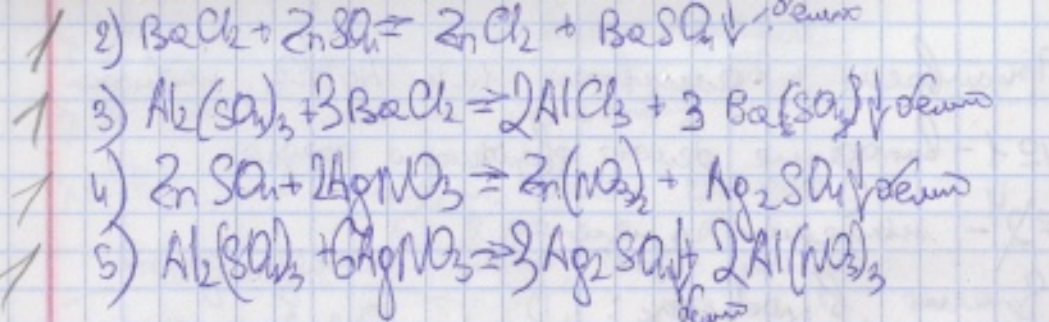 1 2) BaCl₂ + ZnSO₄ = ZnCl₂ + BaSO₄↓ белый
1 3) Al₂(SO₄)₃ + 3BaCl₂ = 2AlCl₃ + 3Ba(SO₄)↓ белый
1 4) ZnSO₄ + 2AgNO₃ = Zn(NO₃)₂ + Ag₂SO₄↓ белый
1 5) Al₂(SO₄)₃ + 6AgNO₃ = 3Ag₂SO₄↓ + 2Al(NO₃)₃
белый